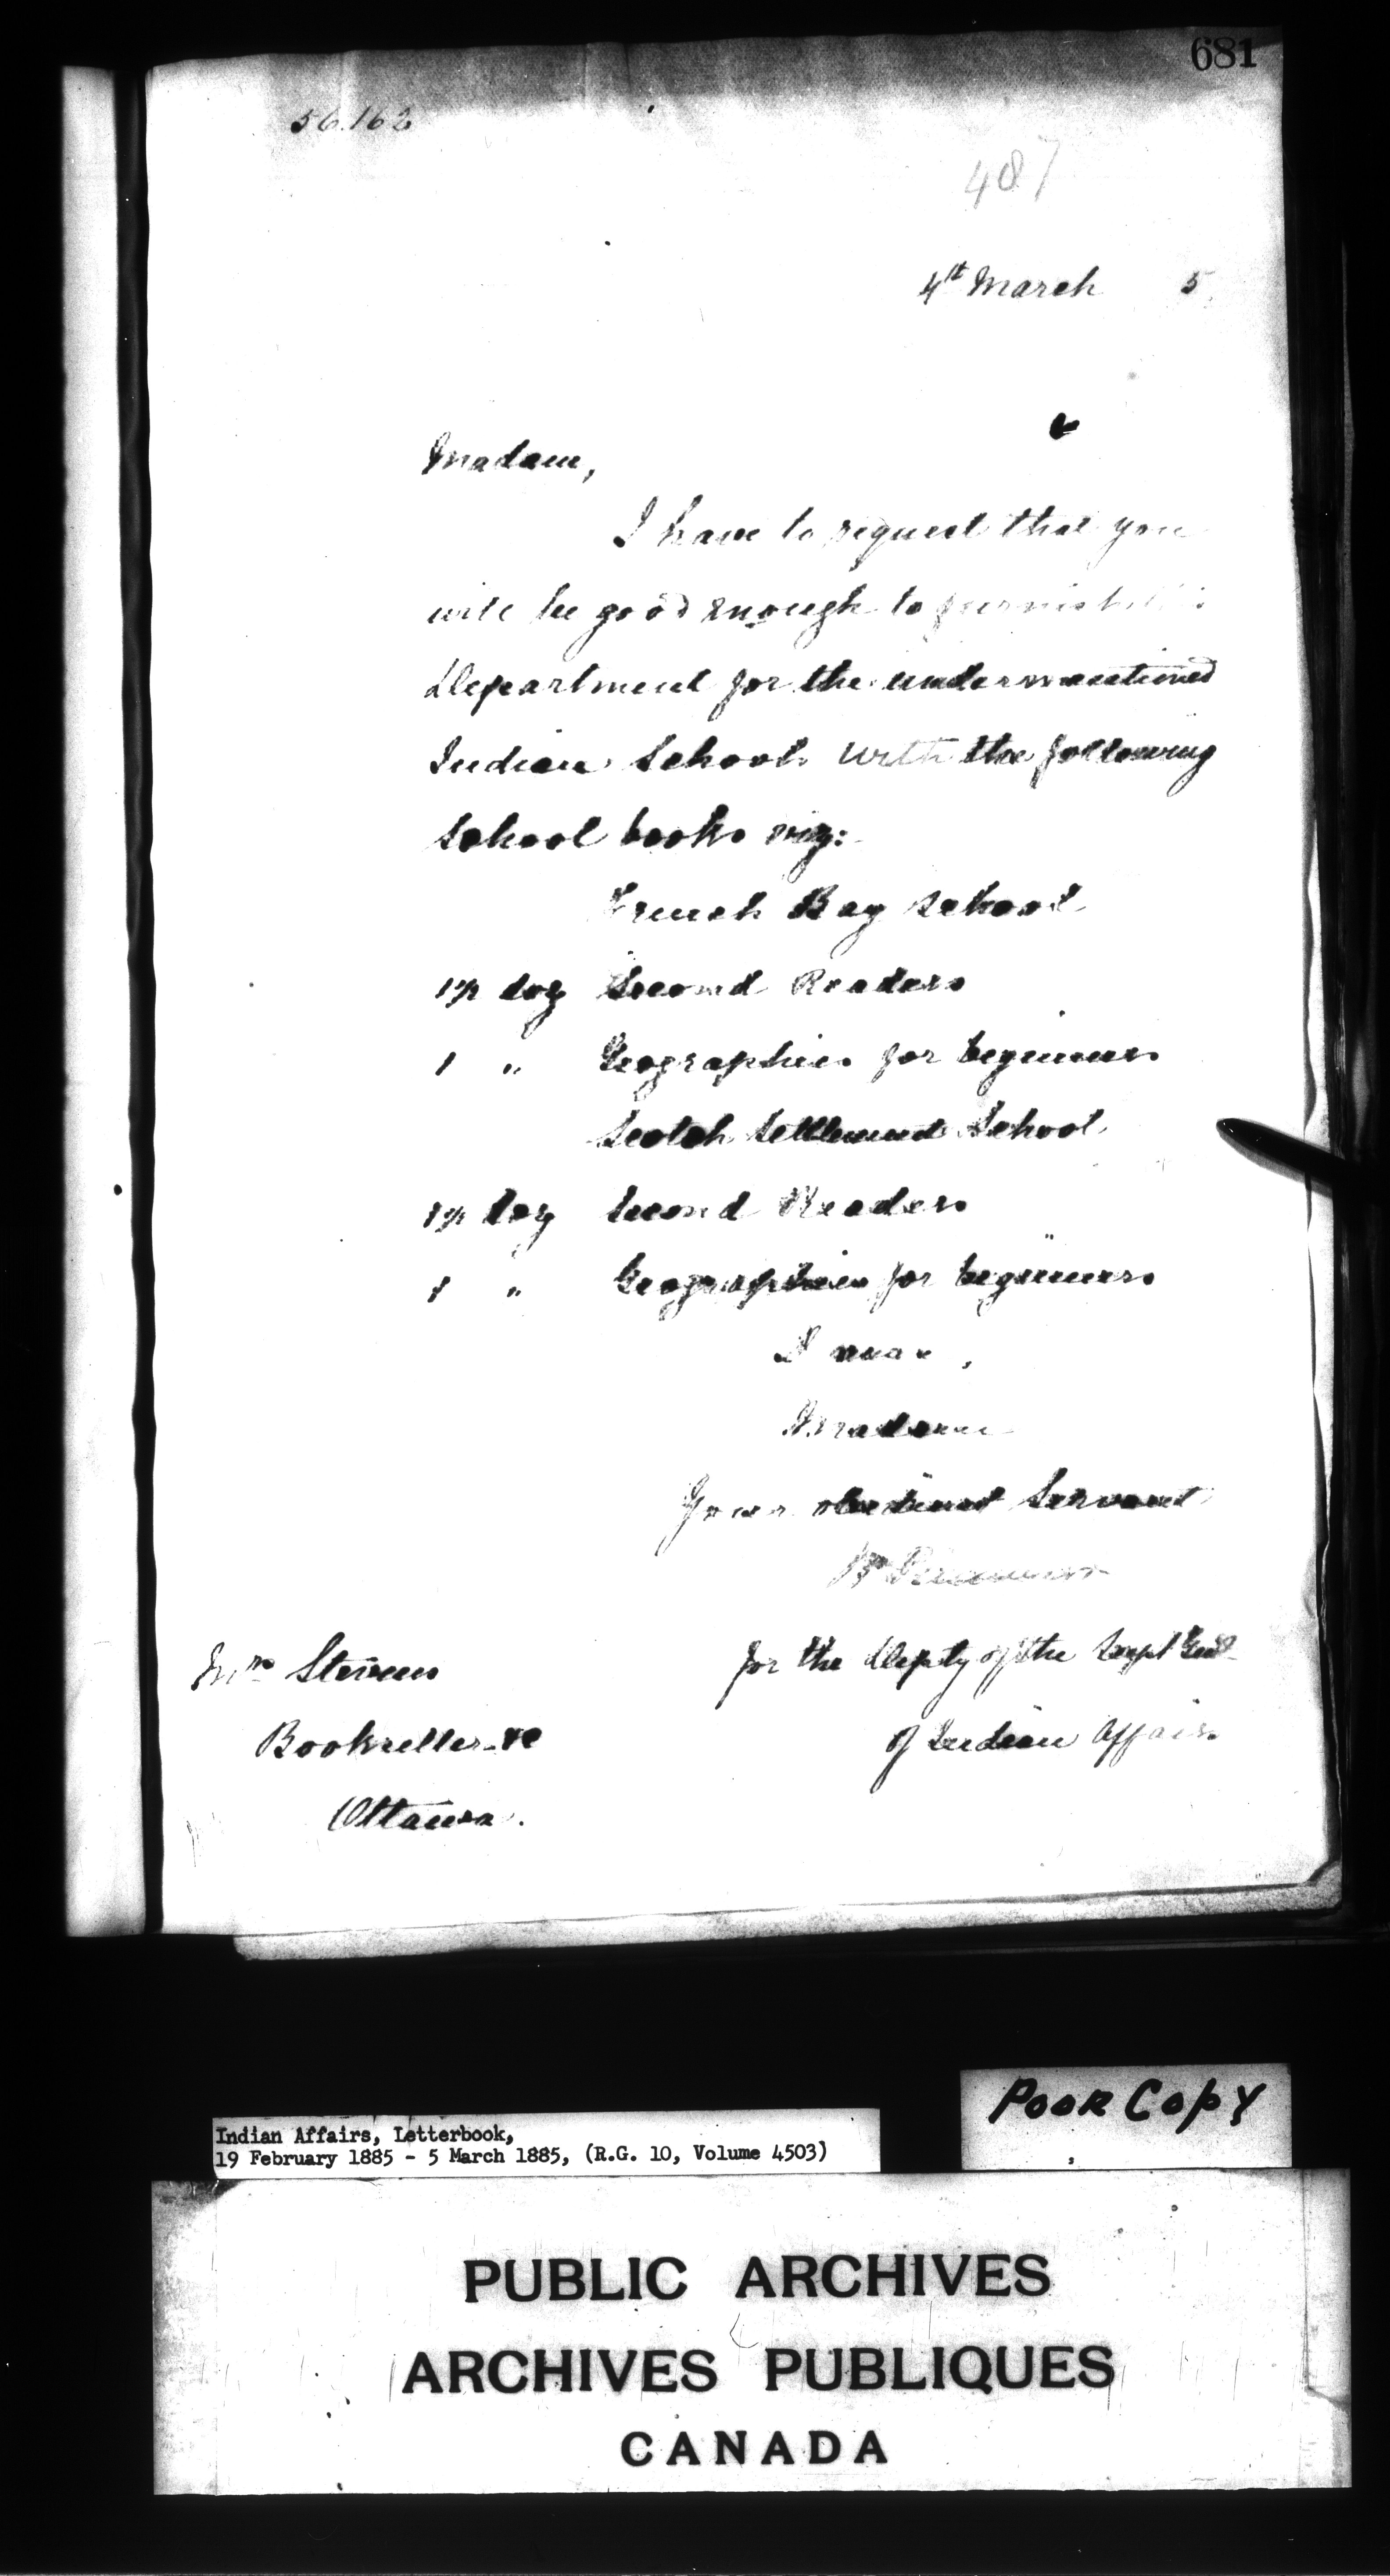 681
56.162
487
4th March 5
Madam,
I have to request that you
will be good enough to furnish this
Department for the undermentioned
Indian Schools with the following
School books viz:
French Bay School
1½ doz Second Readers
1 " Geographies for beginners
Scotch Settlement School
1½ doz Second Readers
1 " Geographies for beginners
I am,
Madam
Your obedient Servant
for the Deputy of the Supt Genl
of Indian Affairs
Mrs Stevens
Bookseller &c
Ottawa.
POOR COPY
Indian Affairs, Letterbook,
19 February 1885 - 5 March 1885, (R.G. 10, Volume 4503)
PUBLIC ARCHIVES
ARCHIVES PUBLIQUES
CANADA